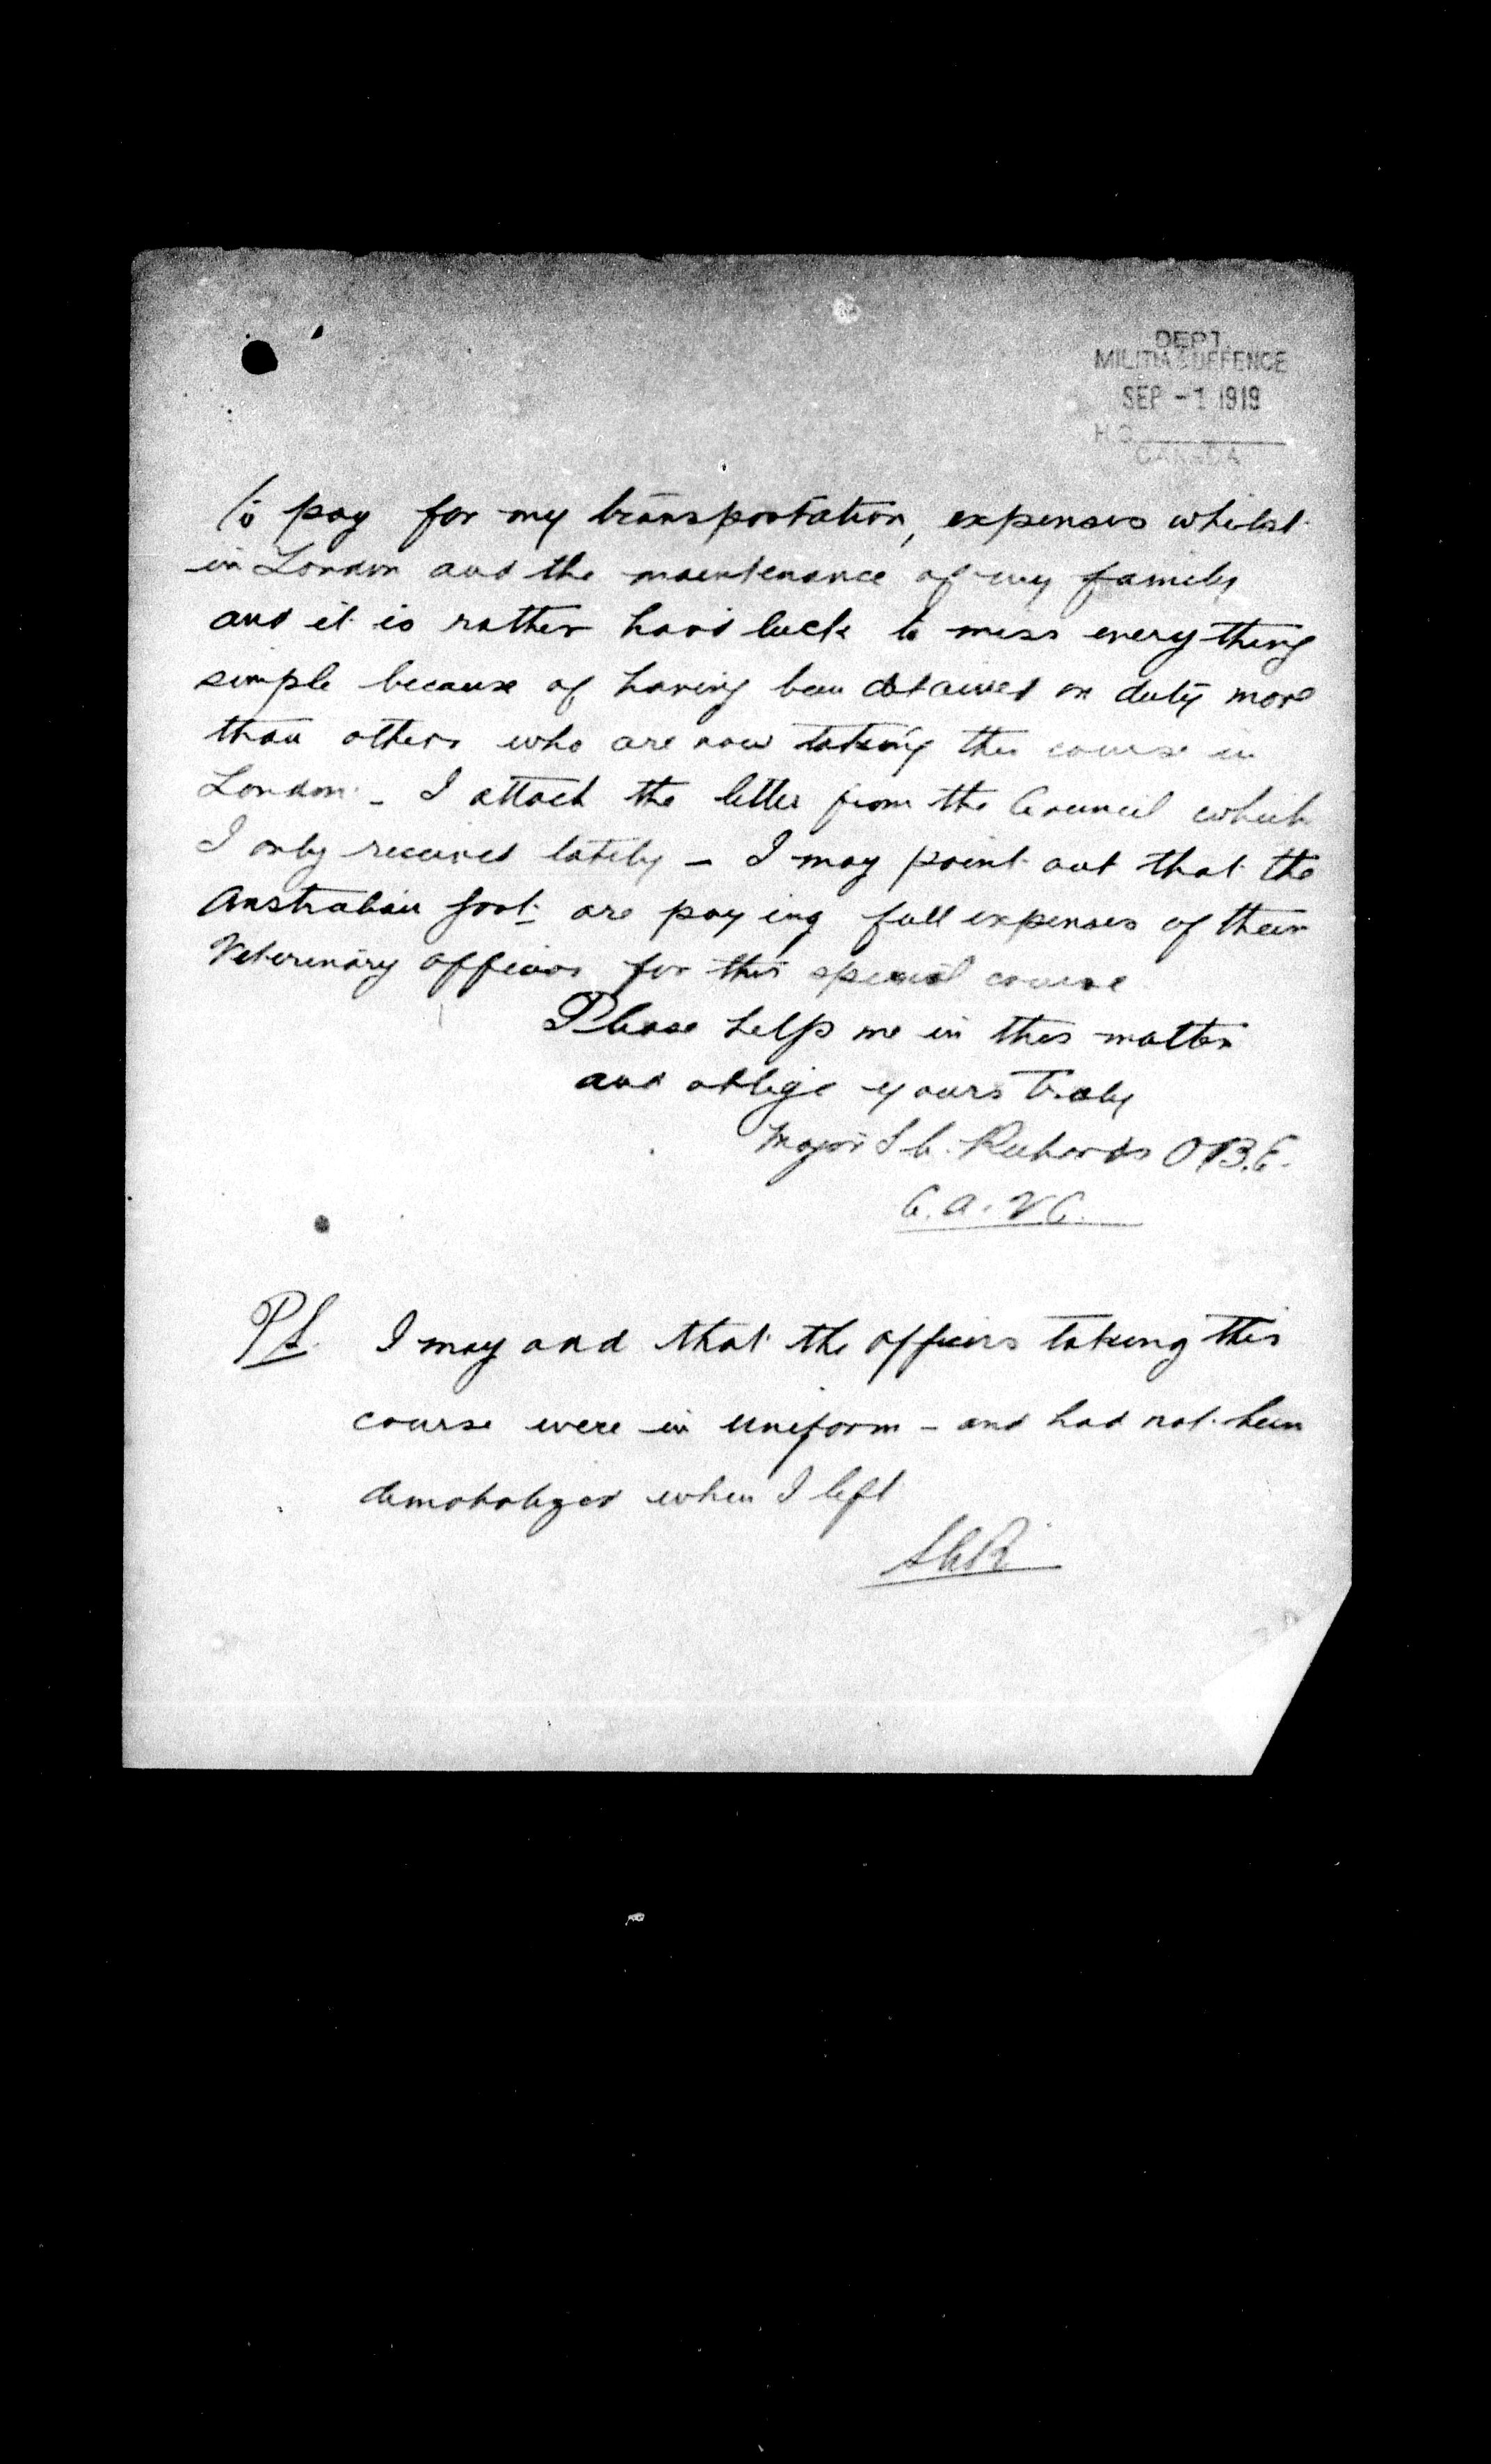 DEPT.
MILITIA & DEFENCE
SEP -1 1919
H.Q.
CANADA
to pay for my transportation, expenses whilst
in London and the maintenance of my family
and it is rather hard luck to miss everything
simple because of having been detained on duty more
than others who are now taking this course in
London. - I attach the letter from the Council which
I only received lately - I may point out that the
Australian Govt. are paying full expenses of their
Veterinary officers for this special course
Please help me in this matter
and oblige yours truly
Major S C. Richards O.B.E.
C.A.V.C.
P.S. I may add that the officers taking this
course were in uniform - and had not been
demobolized when I left
SCR